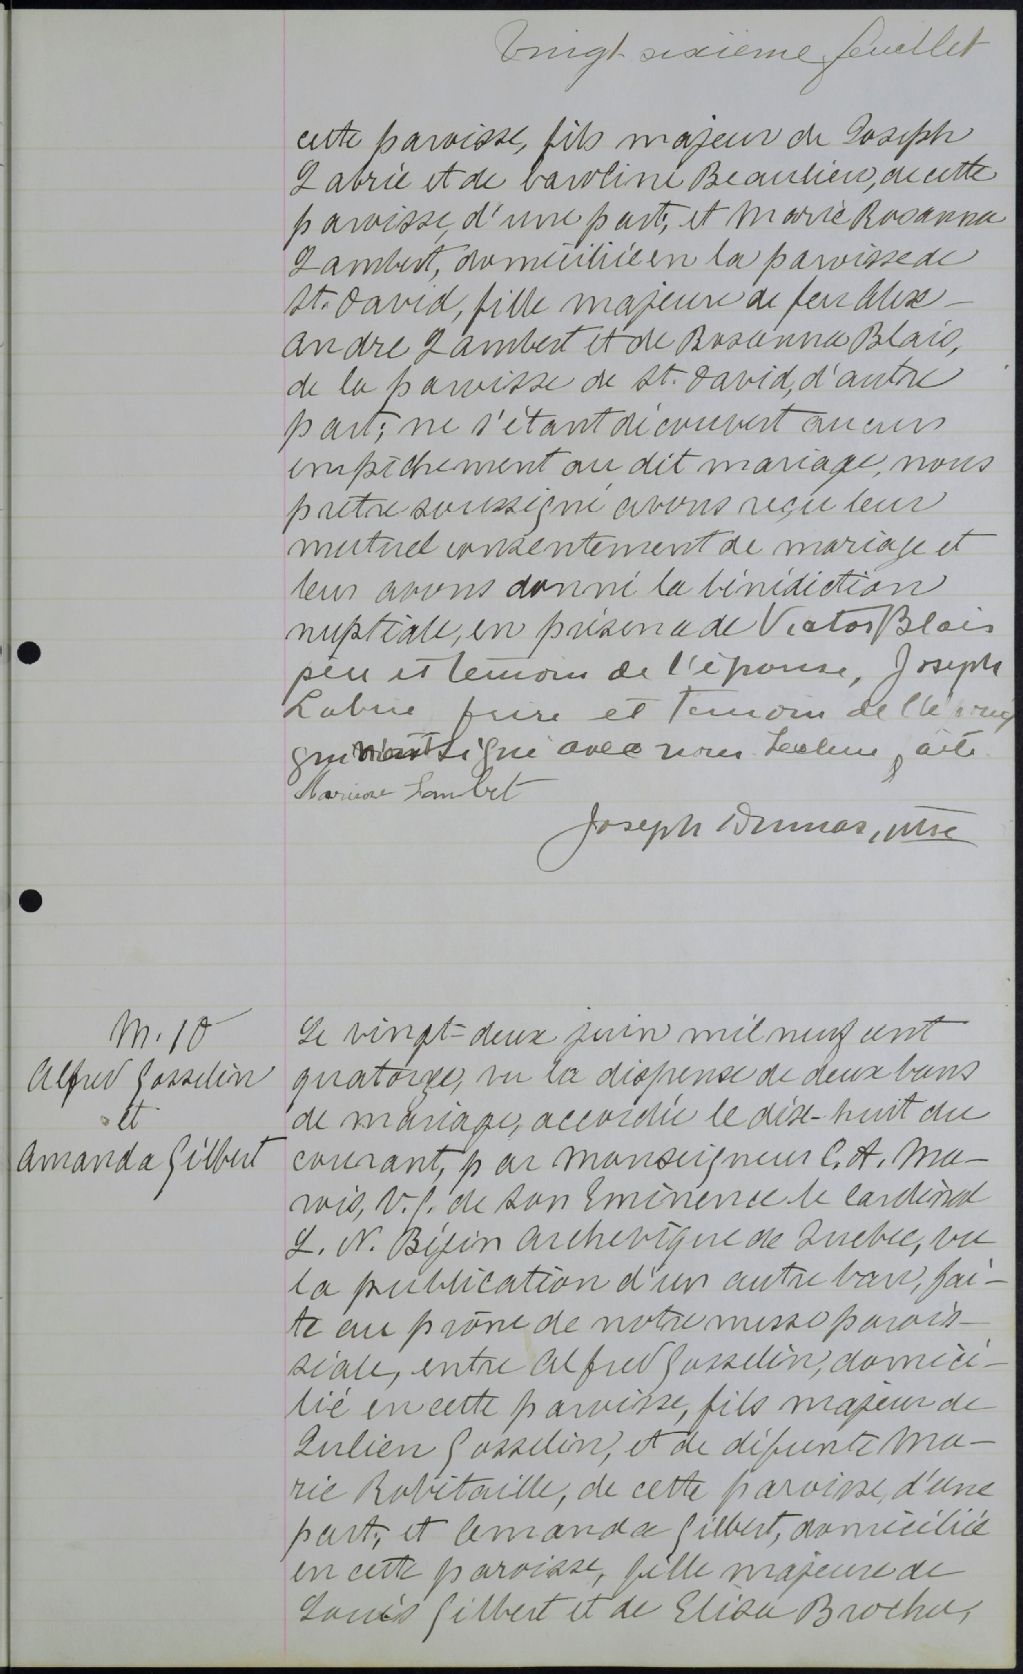 Vingt sixième feuillet
cette paroisse, fils majeur de Joseph
Labrie et de Caroline Beaulieu, de cette
paroisse, d'une part; et Marie Rosanna
Lambert, domiciliée en la paroisse de
St. David, fille majeure de feu Alex-
andre Lambert et de Rosanna Blais,
de la paroisse de St. David, d'autre
part; ne s'étant découvert aucun
empêchement au dit mariage, nous
prêtre soussigné avons reçu leur
mutuel consentement de mariage et
leur avons donné la bénédiction
nuptiale, en présence de Victor Blais
père et témoin de l'épouse, Joseph
Labrie frère et témoin de l'époux
qui signé avec nous Lecture faite
Lambert
Joseph Dumas, ptre
M. 10
Alfred Gosselin
et
Amanda Gilbert
Le vingt-deux juin mil neuf cent
quatorze, vu la dispense de deux bans
de mariage, accordée le dix-huit du
courant, par Monseigneur C. A. Ma-
rois, V. G. de Son Eminence le Cardinal
L. N. Bégin Archevêque de Quebec, vu
la publication d'un autre ban, fai-
te au prône de notre messe parois-
siale, entre Alfred Gosselin, domici-
lié en cette paroisse, fils majeur de
Julien Gosselin, et de défunte Ma-
rie Robitaille, de cette paroisse, d'une
part; et Amanda Gilbert, domiciliée
en cette paroisse, fille majeure de
Louis Gilbert et de Elisa Brochu,